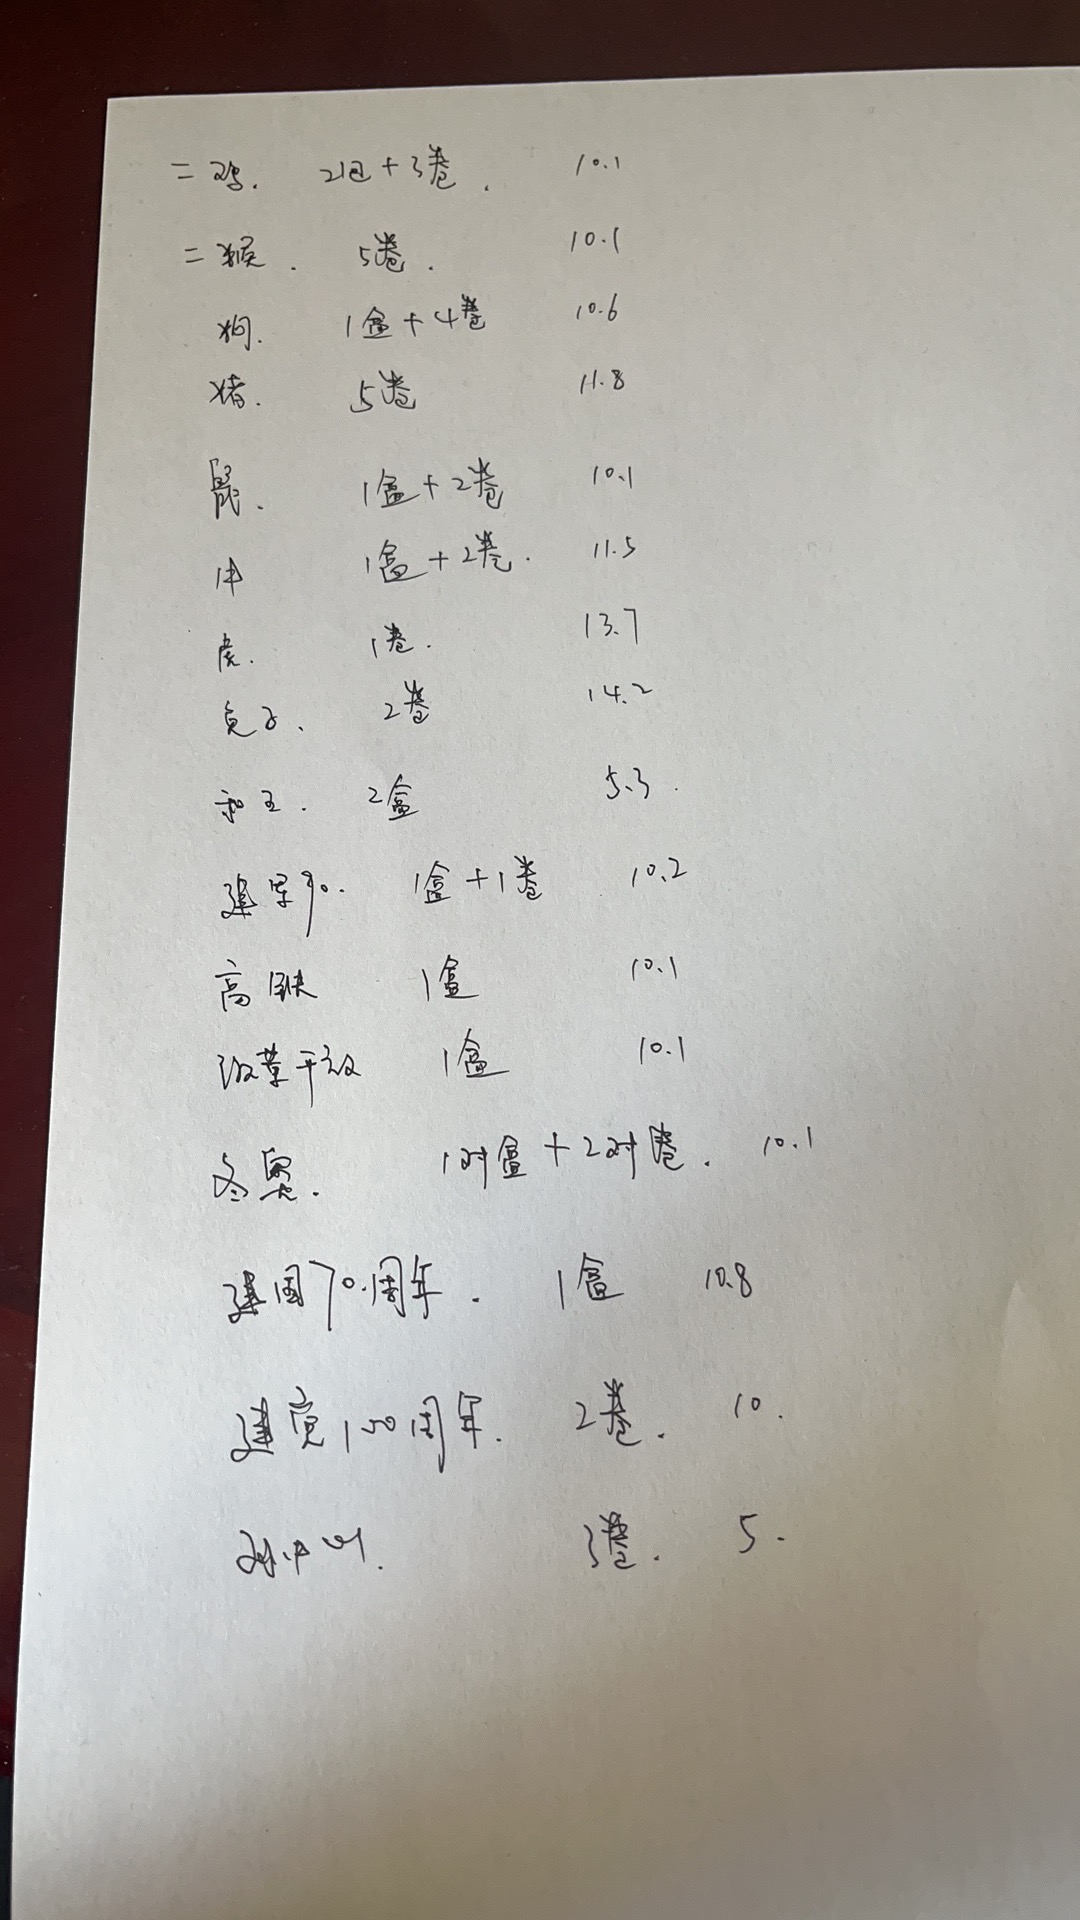 二鸡. 2包+3卷. 10.1
二猴. 5卷. 10.1
狗. 1盒+4卷 10.6
猪. 5卷 11.8
鼠. 1盒+2卷 10.1
牛 1盒+2卷. 11.5
虎. 1卷. 13.7
兔子. 2卷 14.2
和五. 2盒 5.3.
建军90. 1盒+1卷 10.2
高铁 1盒 10.1
改革开放 1盒 10.1
冬奥. 1对盒+2对卷. 10.1
建国70.周年. 1盒 10.8
建党100周年. 2卷. 10.
孙中山. 3卷. 5.